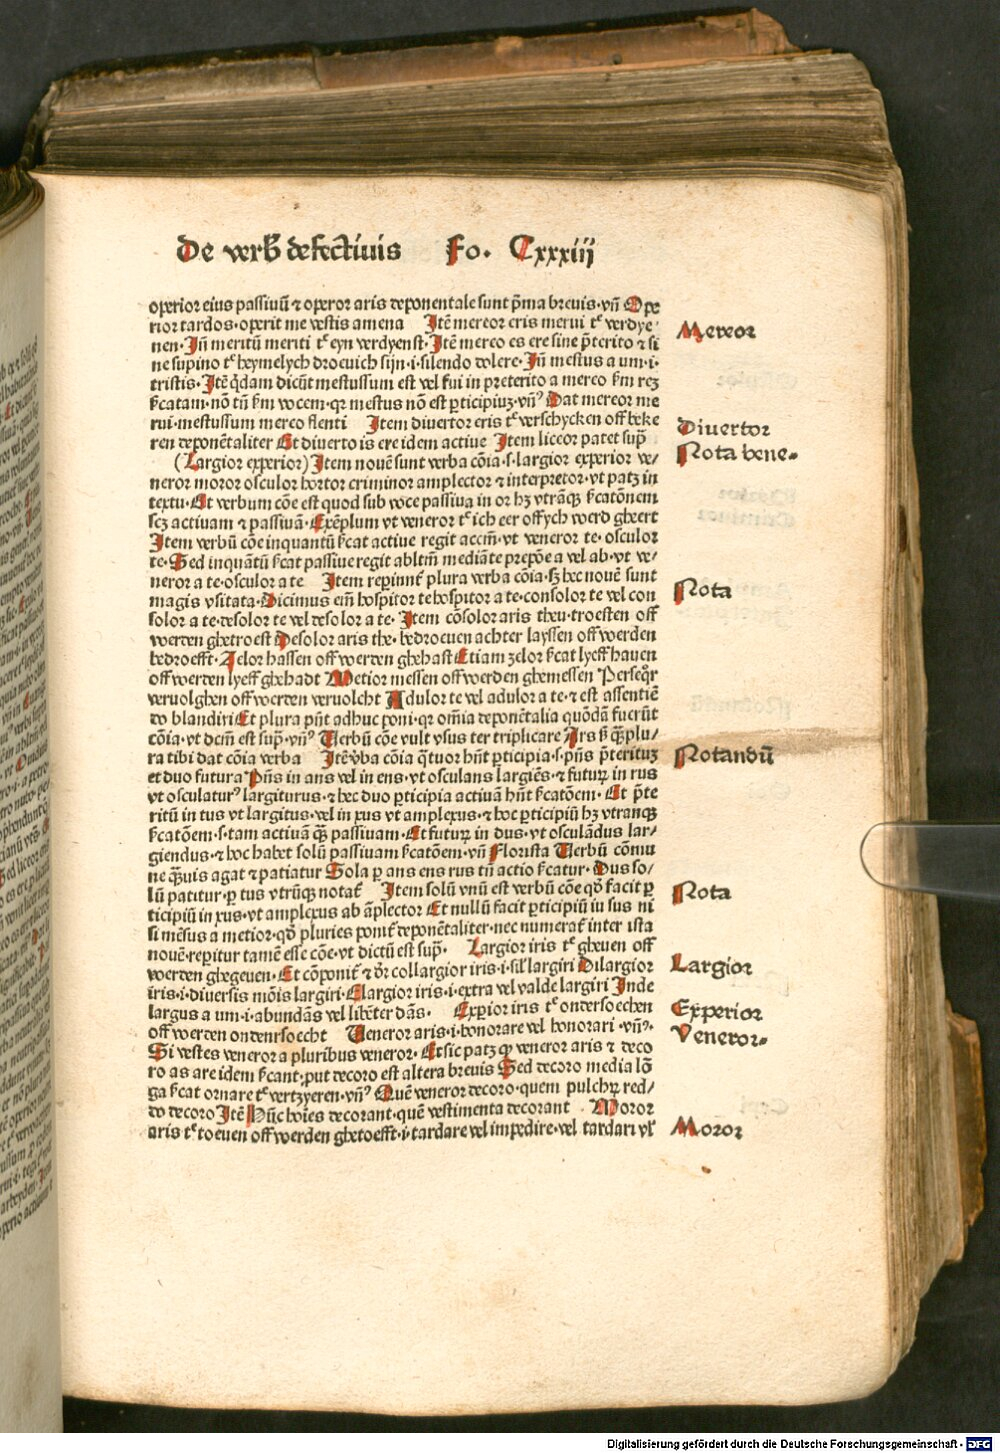 De verb̃ defectiuis Fo. Cxxxiij
operior eius passiuũ ⁊ operor aris deponentale sunt p̃ma breuis·vñ Ope
rior tardos·operit me vestis amena Itẽ mereor eris merui tꝰ verdye⸗
nen·Iñ meritũ meriti tꝰ eyn verdyenst·Itẽ mereo es ere sine p̃terito ⁊ si
ne supino tꝰ heymelych droeuich sijn·i·silendo dolere·Iñ mestus a um·i·
tristis·Itẽ q̃dam dicũt mestussum est vel fui in preterito a mereo
nõ tñ vocem·qꝛ mestus nõ est ꝑticipiuꝫ·vñꝰ Dat mereor me
rui·mestussum mereo flenti Item diuertor eris tꝰ verschycken off beke
ren deponẽtaliter Et diuerto is ere idem actiue Item liceor patet sup̃
(Largior experior) Item nouẽ sunt verba cõia·s·largior experior ve/
neror moror osculor hortor criminor amplector ⁊ interpretor·vt patꝫ in
textu·Et verbum cõe est quod sub voce passiua in or hꝫ vtrãqꝫ ẜcatõnem
scꝫ actiuam ⁊ passiuã·Exẽplum vt veneror tꝰ ich eer off ych werd gheert
Item verbũ cõe inquantũ ẜcat actiue regit accm̃·vt veneror te·osculor
te·Sed inquãtũ ẜcat passiue regit abltm̃ mediãte prepõe a vel ab·vt ve/
neror a te·osculor a te Item reperinnt̃ plura verba cõia·sꝫ hec nouẽ sunt
magis vsitata·Dicimus em̃ hospitor te hospitor a te·consolor te vel con
solor a te·desolor te vel desolor a te·Item cõsolor aris theu·troesten off
werden ghetroest Desolor aris the·bedroeuen achter layssen off werden
bedroefft·Zelor hassen off werden ghehast Etiam zelor ẜcat lyeff hauen
off werden lyeff ghehadt Metior messen off werden ghemessen Perseq̃r
veruolghen off werden veruolcht Adulor te vel adulor a te·⁊ est assentiẽ
do blandiri Et plura pñt adhuc poni·qꝛ om̃ia deponẽtalia quõdã fuerũt
cõia·vt dcm̃ est sup̃·vñꝰ Uerbũ cõe vult vsus ter triplicare Ars ẜ q̃ꝫ plu/
ra tibi dat cõia verba Itẽ v̾ba cõia q̃tuor hñt ꝑticipia·s·pñs p̃terituꝫ
et duo futura Pñs in ans vel in ens·vt osculans largiẽs·⁊ futurꝫ in rus
vt osculaturꝰ largiturus·⁊ hec duo ꝑticipia actiuã hñt ẜcatõem·Et p̃te
ritũ in tus vt largitus·vel in xus vt amplexus·⁊ hoc ꝑticipiũ hꝫ vtranqꝫ
ẜcatõem·s·tam actiuã q̃ꝫ passiuam·Et futurꝫ in dus·vt osculãdus lar/
giendus·⁊ hoc habet solũ passiuam ẜcatõem·vñ Florista Uerbũ cõmu
ne q̃ꝫuis agat ⁊ patiatur Sola ꝑ ans ens rus tñ actio ẜcatur·Dus so/
lũ patitur·ꝑ tus vtrũqꝫ notat̃ Item solũ vnũ est verbũ cõe qd̾ facit ꝑ
ticipiũ in xus·vt amplexus ab ãplector Et nullũ facit ꝑticipiũ iu sus ni
si mẽsus a metior·qd̾ pluries ponit̃ deponẽtaliter·nec numerat̃ inter ista
nouẽ·reperitur tamẽ esse cõe·vt dictũ est sup̃· Largior iris tꝰ gheuen off
werden ghegeuen·Et cõponit̃ ⁊ dr̃ collargior iris·i·sil̃ largiri Dilargior
iris·i·diuersis mõis largiri·Elargior iris·i·extra vel valde largiri Inde
largus a um·i·abundãs vel libẽter dãs· Experior iris tꝰ ondersoechen
off werden ondenrsoecht Ueneror aris·i·honorare vel honorari·vñꝰ·
Si vestes veneror a pluribus veneror·Et sic patꝫ qꝫ veneror aris ⁊ deco
ro as are idem ẜcant·put decoro est altera breuis Sed decoro media lõ
ga ẜcat ornare tꝰ vertzyeren·vñꝰ Quẽ veneror decoro·quem pulchꝝ red/
do decoro Itẽ Hũc hoĩes decorant·quẽ vestimenta decorant Moror
aris tꝰ toeuen off werden ghetoefft·i·tardare vel impedire·vel tardari vl̾
Mereor
Diuertor
Nota bene.
Nota
Notandũ
Nota
Largior
Experior
Veneror.
Moror
Digitalisierung gefördert durch die Deutsche Forschungsgemeinschaft - DFG